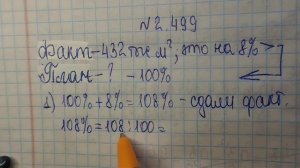 №2.499
Факт-432 тыс м², это на 8% >
План-? - 100%
1) 100% + 8% = 108% - сдали факт.
108% = 108 : 100 =